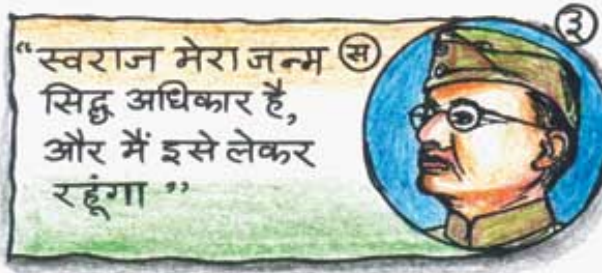 ३
“स्वराज मेरा जन्म (स)
सिद्ध अधिकार है,
और मैं इसे लेकर
रहूंगा ”